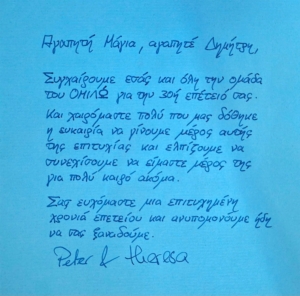 Αγαπητή Μάγια, αγαπητέ Δημήτρη,
Συγχαίρουμε εσάς και όλη την ομάδα
του ΟΜΙΛΩ για την 30ή επέτειό σας.
Και χαιρόμαστε πολύ που μας δόθηκε
η ευκαιρία να γίνουμε μέρος αυτής
της επιτυχίας και ελπίζουμε να
συνεχίσουμε να είμαστε μέρος της
για πολύ καιρό ακόμα.
Σας ευχόμαστε μια επιτυχημένη
χρονιά επετείου και ανυπομονούμε ήδη
να σας ξαναδούμε.
Peter & Theresa